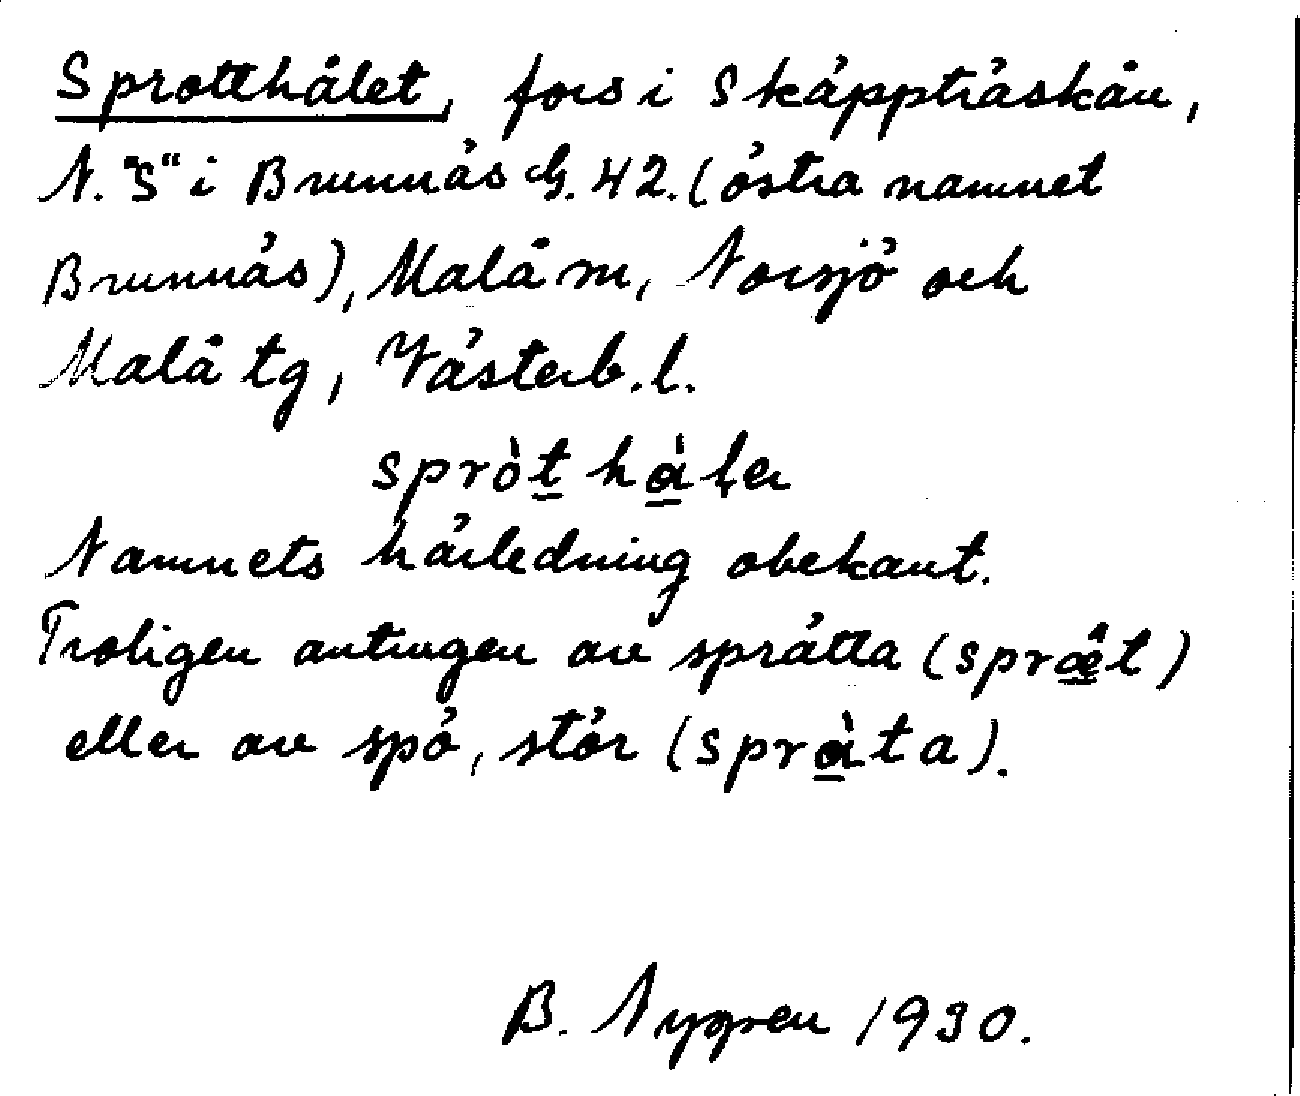 Sprotthålet, fors i Skäppträskån,
N. "S" i Brunnäs G. 42. (östra namnet
Brunnäs), Malå m, Norsjö och
Malå tg, Västerb. l.
spròt hàļer
Namnets härledning obekant.
Troligen antingen av sprätta (spræ̂t)
eller av spö, stör (spràta).
B. Nygren 1930.